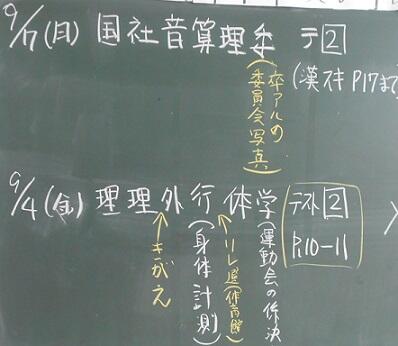 9/7(月) 国社音算理委 テ2
(漢スキ P17まで
(卒アルの
委員会写真)
9/4(金) 理理外行体学 テスト2
P.10-11
↑きがえ
(身体計測)
↑リレ選(体育館)
(運動会の係決